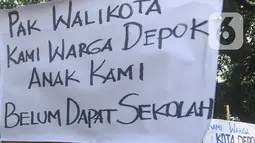 PAK WALIKOTA
KAMI WARGA DEPOK
ANAK KAMI
BELUM DAPAT SEKOLAH
KAMI WARGA
KOTA DEPO
6